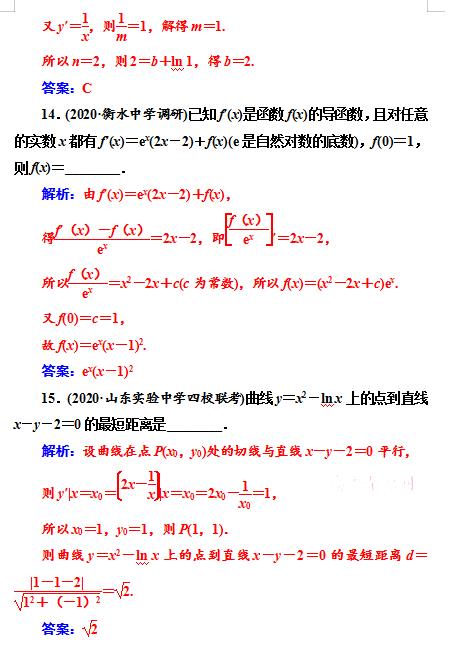 又 y′=1/x, 则1/m=1, 解得 m=1.
所以 n=2, 则 2=b+ln 1, 得 b=2.
答案: C
14. (2020·衡水中学调研)已知 f′(x)是函数 f(x)的导函数, 且对任意
的实数 x 都有 f′(x)=eˣ(2x-2)+f(x)(e 是自然对数的底数), f(0)=1,
则 f(x)=________.
解析: 由 f′(x)=eˣ(2x-2)+f(x),
得 (f′(x)-f(x))/eˣ=2x-2, 即[f(x)/eˣ]′=2x-2,
所以 f(x)/eˣ=x²-2x+c(c 为常数), 所以 f(x)=(x²-2x+c)eˣ.
又 f(0)=c=1,
故 f(x)=eˣ(x-1)².
答案: eˣ(x-1)²
15. (2020·山东实验中学四校联考)曲线 y=x²-ln x 上的点到直线
x-y-2=0 的最短距离是________.
解析: 设曲线在点 P(x₀, y₀)处的切线与直线 x-y-2=0 平行,
则 y′|x=x₀=(2x-1/x)|x=x₀=2x₀-1/x₀=1,
所以 x₀=1, y₀=1, 则 P(1, 1).
则曲线 y=x²-ln x 上的点到直线 x-y-2=0 的最短距离 d=
|1-1-2|/√(1²+(-1)²)=√2.
答案: √2